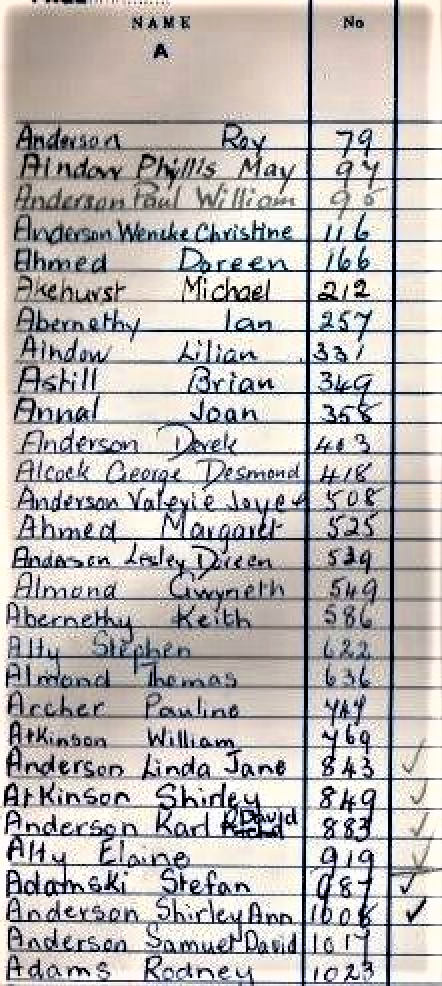 NAME No
A
Anderson Roy 79
Aindow Phyllis May 97
Anderson Paul William 95
Anderson Wencke Christine 116
Ahmed Doreen 166
Akehurst Michael 212
Abernethy Ian 257
Aindow Lilian 331
Astill Brian 349
Annal Joan 358
Anderson Derek 403
Alcock George Desmond 418
Anderson Valerie Joyce 508
Ahmed Margaret 525
Anderson Lesley Doreen 539
Almond Gwyneth 549
Abernethy Keith 586
Alty Stephen 622
Almond Thomas 636
Archer Pauline
Atkinson William 769
Anderson Linda Jane 843 ✓
Atkinson Shirley 849 ✓
Anderson Karl David 883 ✓
Alty Elaine 919 ✓
Adamski Stefan 987 ✓
Anderson Shirley Ann 1008 ✓
Anderson Samuel David 1017
Adams Rodney 1023